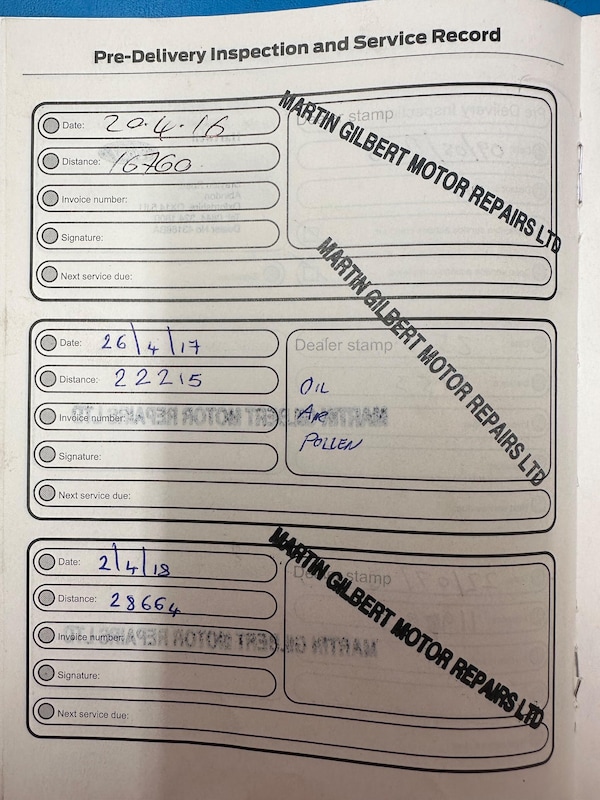 Pre-Delivery Inspection and Service Record
Date: 20.4.16
Distance: 16760
Invoice number:
Signature:
Next service due:
Dealer stamp
MARTIN GILBERT MOTOR REPAIRS LTD
Date: 26/4/17
Distance: 22215
Invoice number:
Signature:
Next service due:
Dealer stamp
MARTIN GILBERT MOTOR REPAIRS LTD
OIL
AIR
POLLEN
Date: 2/4/18
Distance: 28664
Invoice number:
Signature:
Next service due:
Dealer stamp
MARTIN GILBERT MOTOR REPAIRS LTD